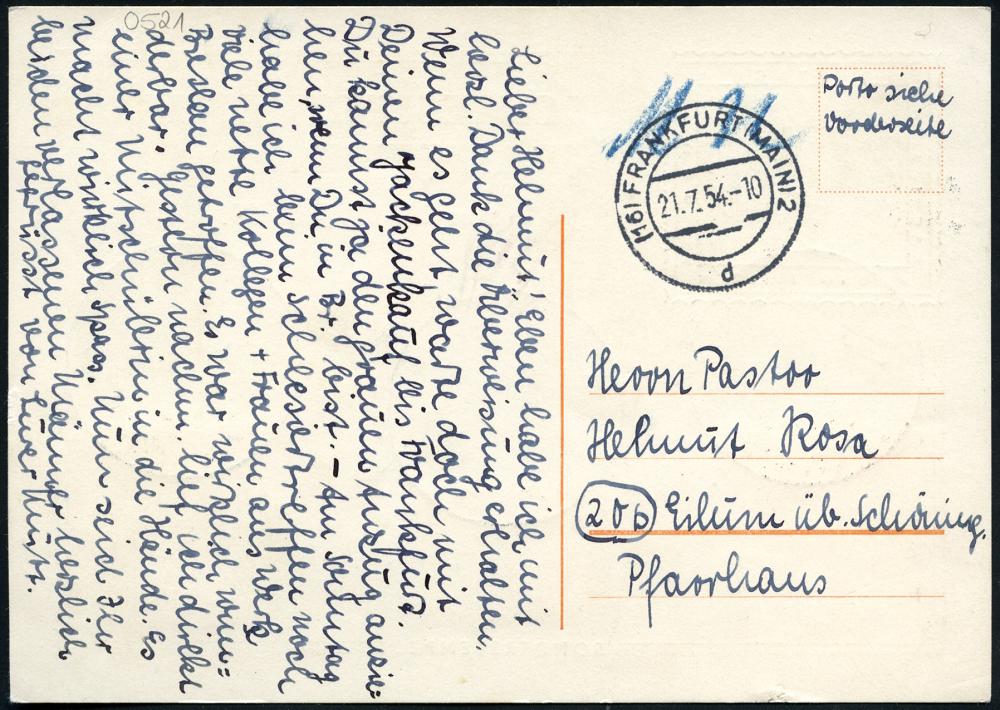 0521
Lieber Helmut! Eben habe ich mit
herzl. Dank die Überweisung erhalten.
Wenn es geht warte doch mit
Deinem Jackenkauf bis Frankfurt.
Du kannst ja den grauen Anzug anzie=
hen, wenn Du in Br. bist. – Am Sonntag
habe ich beim Schlesiertreffen noch
viele nette Kollegen + Frauen aus
Breslau getroffen. Es war wirklich wun=
derbar. Gestern nachm. lief ich direkt
einer Mitschülerin in die Hände. Es
macht wirklich Spass. Nun seid Ihr
beiden verlassenen Männer herzlich
gegrüsst von Eurer
Porto siehe
Vorderseite
(16) FRANKFURT (MAIN) 2
21.7.54.-10
d
Herrn Pastor
Helmut Rosa
20b Eilum üb. Schöning.
Pfarrhaus